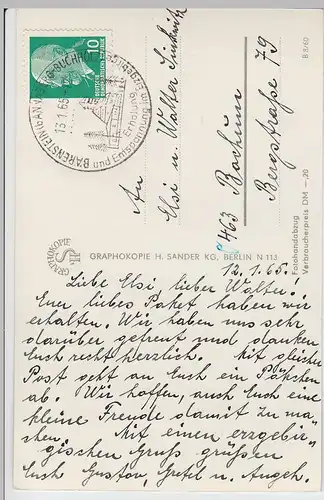 10
DEUTSCHE DEMOKRATISCHE REPUBLIK
BÄRENSTEIN
13.1.65
und Entspannung im
Erholung
An
Elsi u. Walter
463 Bochum
Bergstraße 79
B 8/60
Fotohandabzug
Verbraucherpreis DM -.20
GRAPHOKOPIE
GRAPHOKOPIE H. SANDER KG, BERLIN N 113
12.1.65.
Liebe Elsi, lieber Walter!
Euer liebes Paket haben wir
erhalten. Wir haben uns sehr
darüber gefreut und danken
Euch recht herzlich. Mit gleicher
Post geht an Euch ein Päkchen
ab. Wir hoffen, auch Euch eine
kleine Freude damit zu ma-
chen. Mit einen erzgebir-
gischen Gruß grüßen
Euch Gustav, Gretel u. Angeh.